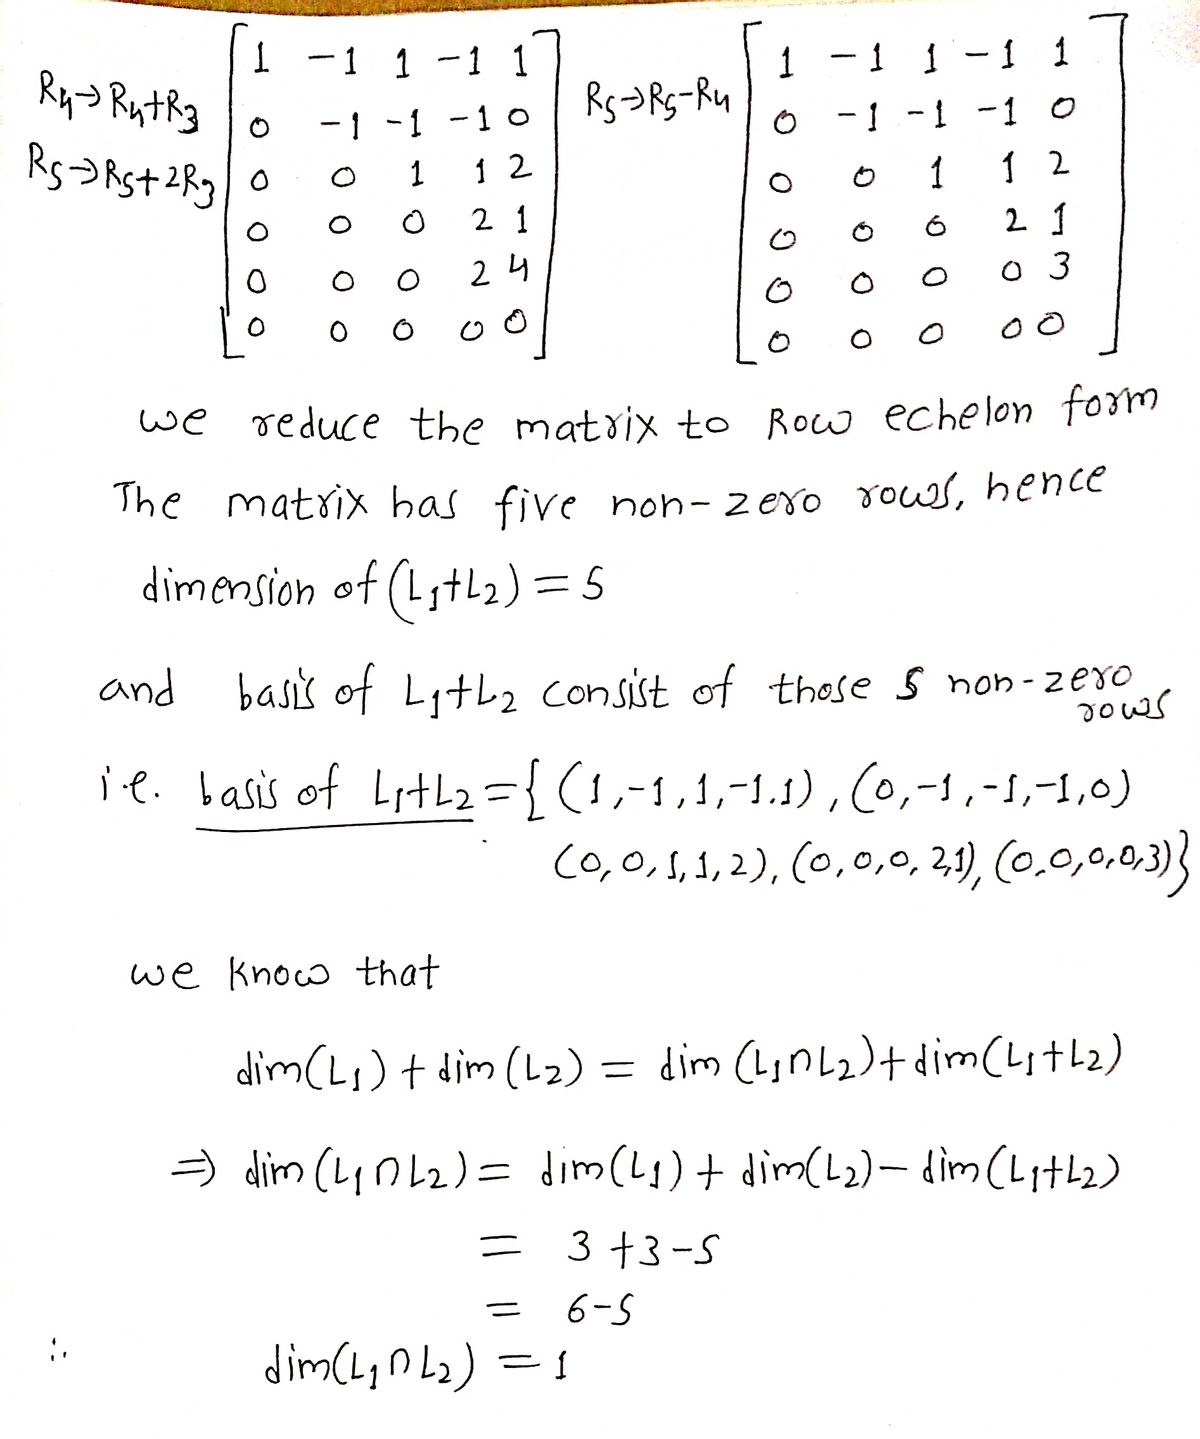 R4→R4+R3
R5→R5+2R3
[1 -1 1 -1 1]
[0 -1 -1 -1 0]
[0 0 1 1 2]
[0 0 0 2 1]
[0 0 0 2 4]
[0 0 0 0 0]
R5→R5-R4
[1 -1 1 -1 1]
[0 -1 -1 -1 0]
[0 0 1 1 2]
[0 0 0 2 1]
[0 0 0 0 3]
[0 0 0 0 0]
we reduce the matrix to Row echelon form
The matrix has five non-zero rows, hence
dimension of (L1+L2) = 5
and basis of L1+L2 consist of those 5 non-zero rows
i.e. basis of L1+L2 = { (1,-1,1,-1.1), (0,-1,-1,-1,0)
(0,0,1,1,2), (0,0,0,2,1), (0,0,0,0,3)}
we know that
dim(L1) + dim(L2) = dim(L1∩L2) + dim(L1+L2)
⇒ dim(L1∩L2) = dim(L1) + dim(L2) - dim(L1+L2)
= 3+3-5
= 6-5
∴ dim(L1∩L2) = 1